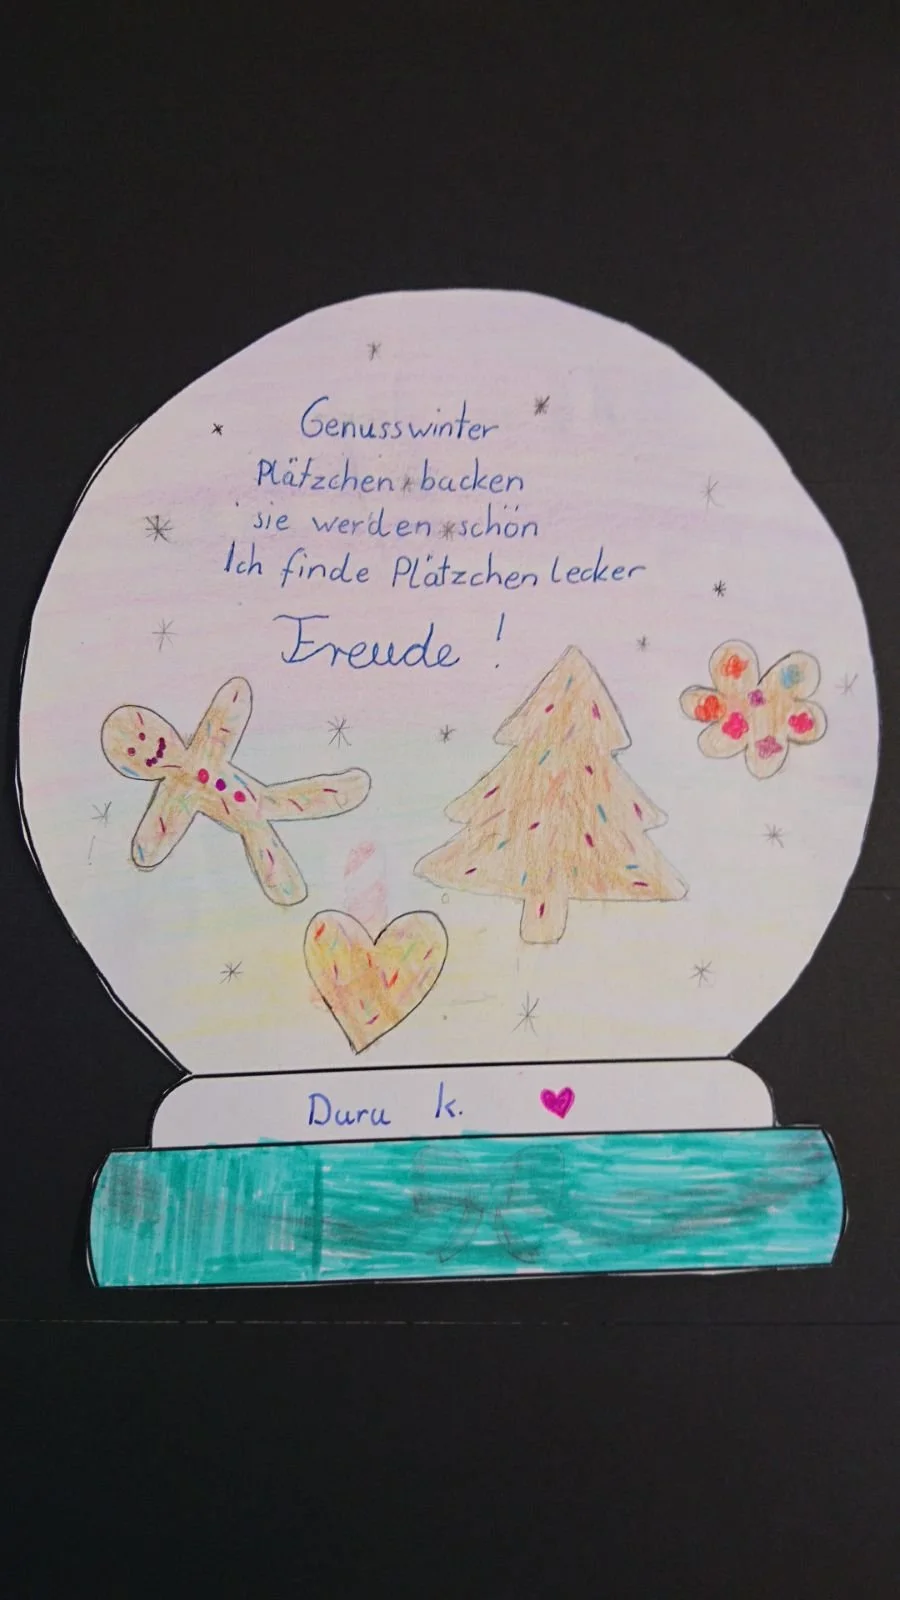 Genusswinter
Plätzchen backen
sie werden schön
Ich finde Plätzchen lecker
Freude!
Duru k.